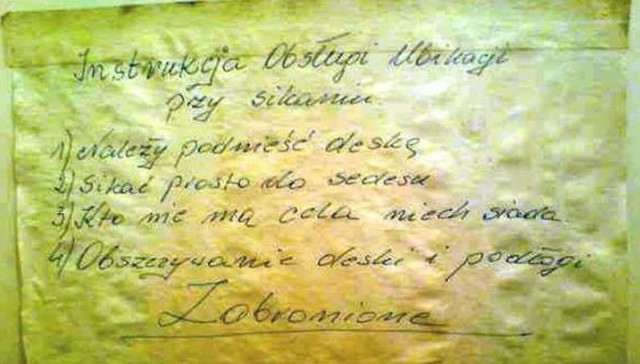 Instrukcja Obsługi Ubikacji
przy sikaniu
1) Należy podnieść deskę
2) Sikać prosto do sedesu
3) Kto nie ma cela niech siada
4) Obszczywanie deski i podłogi
Zabronione